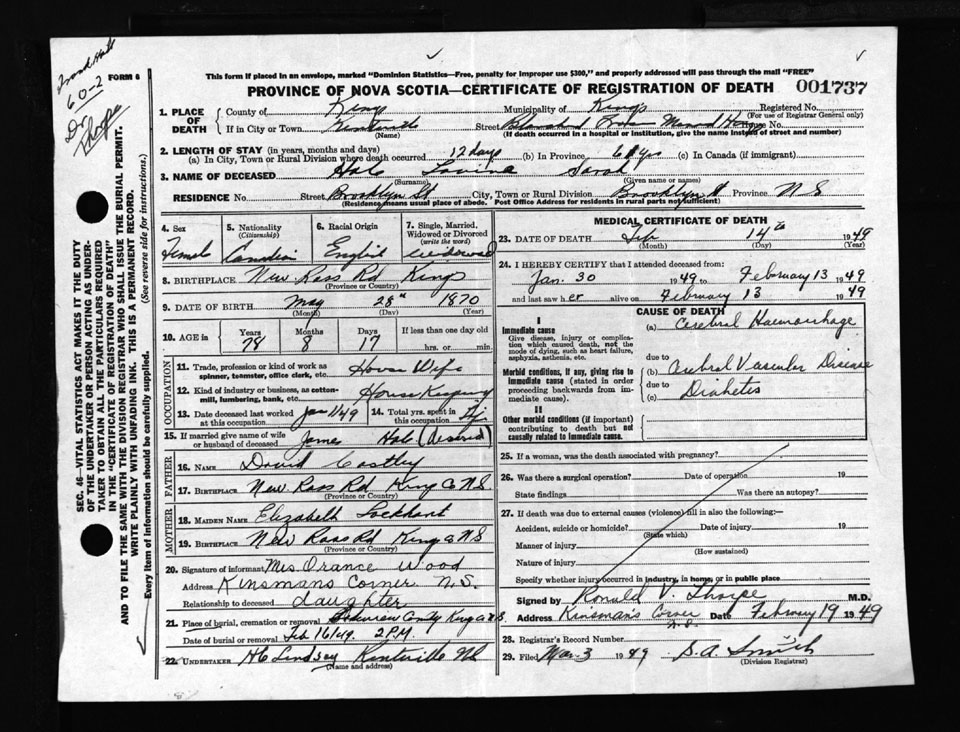 FORM 6
60-2
Dr
Thorpe
This form if placed in an envelope, marked "Dominion Statistics—Free, penalty for improper use $300," and properly addressed will pass through the mail "FREE"
PROVINCE OF NOVA SCOTIA—CERTIFICATE OF REGISTRATION OF DEATH 001737
1. PLACE OF DEATH County of Kings Municipality of Kings Registered No.
(For use of Registrar General only)
If in City or Town Street Blanchard House No.
(Name) (If death occurred in a hospital or institution, give the name instead of street and number)
2. LENGTH OF STAY (in years, months and days)
(a) In City, Town or Rural Division where death occurred 12 days (b) In Province yrs (c) In Canada (if immigrant)
3. NAME OF DECEASED Hale Lavina Sarah
(Surname) (Given name or names)
RESIDENCE No. Street Brooklyn St City, Town or Rural Division Brooklyn St Province N S
(Residence means place of abode. Post Office Address for residents in rural parts not sufficient)
4. Sex Female
5. Nationality (Citizenship) Canadian
6. Racial Origin English
7. Single, Married, Widowed or Divorced (write the word) Widowed
8. BIRTHPLACE New Ross Rd Kings
(Province or Country)
9. DATE OF BIRTH May 28th 1870
(Month) (Day) (Year)
10. AGE in Years 78 Months 8 Days 17 If less than one day old hrs. or min.
OCCUPATION
11. Trade, profession or kind of work as spinner, teamster, office clerk, etc. House Wife
12. Kind of industry or business, as cotton-mill, lumbering, bank, etc. House Keeping
13. Date deceased last worked at this occupation Jan 1/49 14. Total yrs. spent in this occupation Life
15. If married give name of wife or husband of deceased James Hale (Deceased)
FATHER
16. NAME David Costley
17. BIRTHPLACE New Ross Rd Kings Co N.S.
(Province or Country)
MOTHER
18. MAIDEN NAME Elizabeth Lockhart
19. BIRTHPLACE New Ross Rd Kings Co N S
(Province or Country)
20. Signature of informant Mrs. Orance Wood
Address Kinsmans Corner N.S.
Relationship to deceased daughter
21. Place of burial, cremation or removal Kings Co N S
Date of burial or removal Feb 16/49. 2 P.M.
22. UNDERTAKER Lindsay Kentville NS
(Name and address)
MEDICAL CERTIFICATE OF DEATH
23. DATE OF DEATH Feb 14th 1949
(Month) (Day) (Year)
24. I HEREBY CERTIFY that I attended deceased from:
Jan. 30 1949 to February 13 1949
and last saw her alive on February 13 1949
CAUSE OF DEATH
I
Immediate cause
Give disease, injury or complication which caused death, not the mode of dying, such as heart failure, asphyxia, asthenia, etc.
(a) Cerebral Haemorrhage
due to
Morbid conditions, if any, giving rise to immediate cause (stated in order proceeding backwards from immediate cause).
(b) Cerebral Vascular Disease
due to
(c) Diabetis
II
Other morbid conditions (if important) contributing to death but not causally related to immediate cause.
25. If a woman, was the death associated with pregnancy?
26. Was there a surgical operation? Date of operation 19
State findings Was there an autopsy?
27. If death was due to external causes (violence) fill in also the following:
Accident, suicide or homicide? Date of injury 19
(State which)
Manner of injury
(How sustained)
Nature of injury
Specify whether injury occurred in industry, in home, or in public place
Signed by Ronald V. Thorpe M.D.
Address Kinsman's Corner N.S. Date February 19 1949
28. Registrar's Record Number
29. Filed Mar. 3 1949 Smith
(Division Registrar)
SEC. 46—VITAL STATISTICS ACT MAKES IT THE DUTY
OF THE UNDERTAKER OR PERSON ACTING AS UNDERTAKER TO OBTAIN ALL THE PARTICULARS REQUIRED
IN THE "CERTIFICATE OF REGISTRATION OF DEATH"
AND TO FILE THE SAME WITH THE DIVISION REGISTRAR WHO SHALL ISSUE THE BURIAL PERMIT.
WRITE PLAINLY WITH UNFADING INK. THIS IS A PERMANENT RECORD.
Every item of information should be carefully supplied. (See reverse side for instructions.)